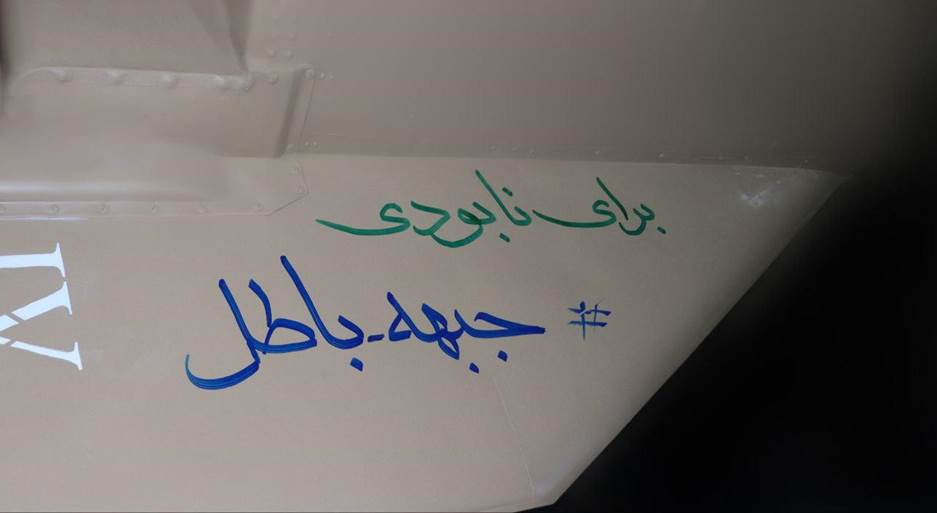 برای نابودی
#جبهه_باطل